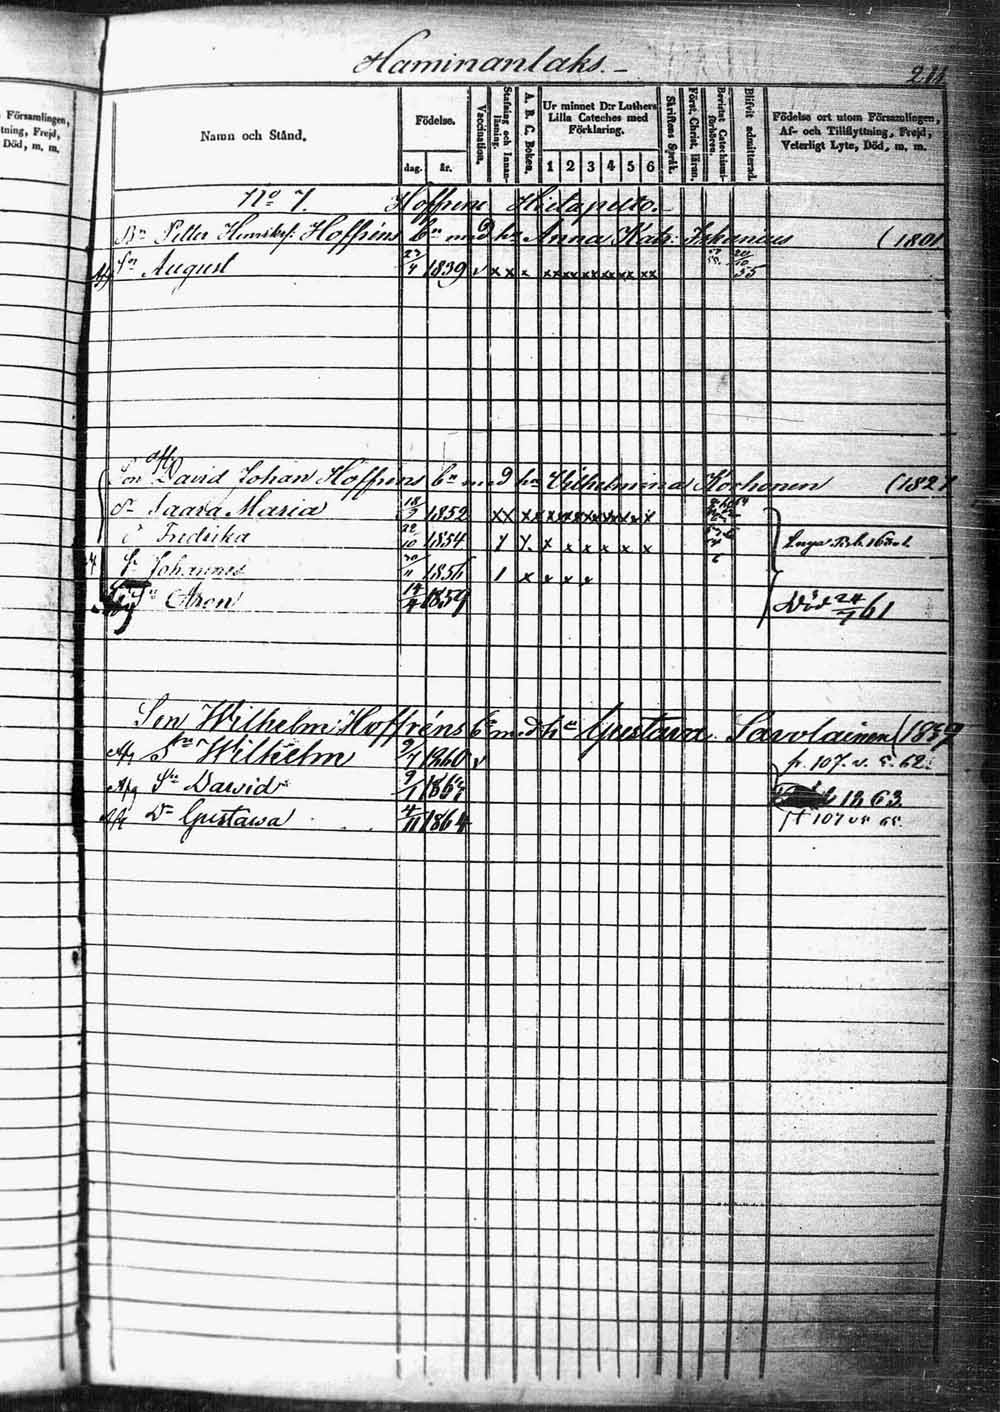 Haminanlaks. 211
Församlingen,
tning, Frejd,
Död, m. m.
Namn och Stånd.
Födelse.
dag. år.
Vaccination.
Stafning och Innanläsning.
A. B. C. Boken.
Ur minnet D:r Luthers
Lilla Cateches med
Förklaring.
1 2 3 4 5 6
Skriftens Språk.
Först. Christ. läran.
Bevistat Catechismiförhören.
Blifvit admitterad.
Födelse ort utom Församlingen,
Af- och Tillflyttning, Frejd,
Veterligt Lyte, Död, m. m.
No 7. Hoffren
Bn Petter Hoffréns bn med hu Anna Katr. (1801
Sn August 23/4 1839 v x x x x x x x x x x x
Son David Johan Hoffréns bn med hu Wilhelmina Korhonen (1827
Dr Saara Maria 18/7 1852 x x x x x x x x x x
d Fredrika 22/10 1854 x x x x x x x
Sn Johannes 30/11 1856 x x x x
Sn Aron 14/4 1859 Död 24/7 61
Son Wilhelm Hoffréns bn med hu Gustava Savolainen (1839
Afg Sn Wilhelm 9/7 1860 v fr. 107. v. s. 62.
Afg Sn Dawid 9/1 1863 1863.
Afg Dr Gustawa 4/11 1864 107